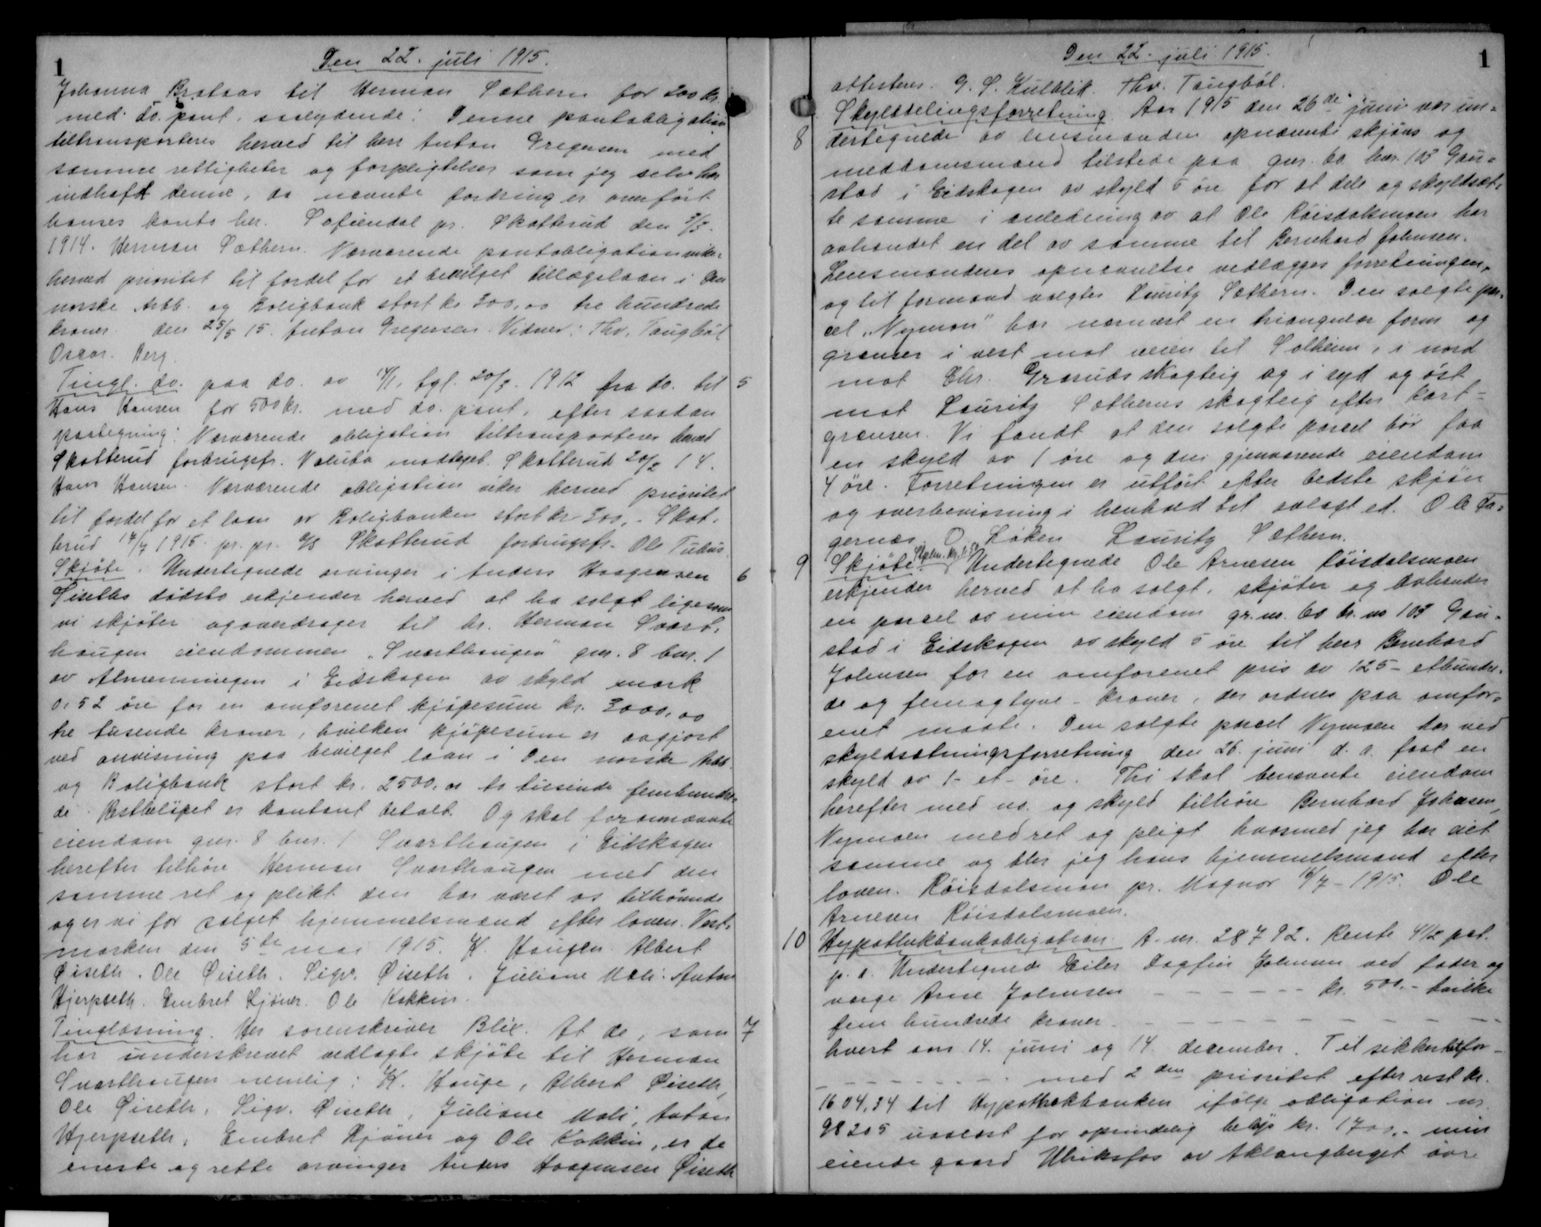 1
Den 22. juli 1915.
Johanna Brataas til Herman Sæthern for 200 kr.
med do. pant. saalydende: Denne pantobligation
tiltransporteres herved til herr Anton Gregersen med
samme rettigheter og forpligtelser som jeg selv har
indehaft denne, da nævnte fordring er overført
hannes konto her. Skotterud den
1914. Herman Sæthern. Nærværende pantobligation viker
herved prioritet til fordel for et bevilget tillægslaan i Den
norske Arb. og Boligbank stort kr 300,00 tre hundrede
kroner. den 25/5 15. Anton Gregersen. Vidner: Thv. Tangbøl
Oscar Berg.
Tingl. do. paa do. av tgl. 20/3 1912 fra do. til 5
Hans Hansen for 500 kr. med do. pant, efter saadan
paategning: Nærværende obligation tiltransporteres herved
Skotterud forbrugsfr. Valuta modtaget. Skotterud 20/2 14.
Hans Hansen. Nærværende obligation viker herved prioritet
til fordel for et laan av Boligbanken stort kr 300,- Skot.
terud 17/7 1915 pr. pr. A/S Skotterud forbrugsfr. Ole
Skjøte. Undertegnede arvinger i Anders Haagensen 6
Øiseths dødsbo erkjender herved at ha solgt ligesom
vi skjøter og overdrager til hr. Herman Svart.
haugen eiendommen "Svarthaugen" gnr. 8 bnr. 1
av Almenningen i Eidskogen av skyld mark
0.52 øre for en omforenet kjøpesum kr. 3000,00
tre tusende kroner, hvilken kjøpesum er avgjort
ved anvisning paa bevilget laan i Den norske Arb.
og Boligbank stort kr. 2500,00 to tusende femhundre-
de. Restbeløpet er kontant betalt. Og skal forannævnte
eiendom gnr. 8 bnr. 1 Svarthaugen i Eidskogen
herefter tilhøre Herman Svarthaugen med den
samme ret og plikt den har været os tilhørende
og er vi for salget hjemmelsmænd efter loven. Vest-
marken den 5te mai 1915. K. Haugen. Albert
Øiseth. Ole Øiseth. Sigv. Øiseth. Juliane Moli. Anton
Hjerpseth. Embret Kjöner. Ole Kokkin.
Tinglæsning. Hr sorenskriver Blix. At de, som 7
har underskrevet vedlagte skjøte til Herman
Svarthaugen nemlig: K. Hauge, Albert Øiseth,
Ole Øiseth, Sigv. Øiseth, Juliane Moli, Anton
Hjerpseth, Embret Kjöner og Ole Kokkin, er de
eneste og rette arvinger Anders Haagensen Øiseth
1
Den 22. juli 1915.
attesteres. G. S. Kulblik. Thv. Tangbøl.
Skylddelingsforretning. Aar 1915 den 26de juni var un-
8 dertegnede av lensmanden opnævnte skjøns og
meddomsmænd tilstede paa gnr. 60 bnr. 103 Gau-
stad i Eidskogen av skyld 5 øre for at dele og skyldsæt-
te samme i anledning av at Ole Røisdalsmoen har
avhændet en del av samme til Bernhard Johnsen.
Lensmandens opnævnelse vedlægges forretningen,
og til formand valgtes Lauritz Sæthern. Den solgte par-
cel "Nymoen" har nærmest en triangulær form og
grænser i vest mot veien til Solheim, i nord
mot Chr. Granuds skogteig og i syd og øst
mot Lauritz Sætherns skogteig efter kart-
grænsen. Vi fandt at den solgte parcel bør faa
en skyld av 1 øre og den gjenværende eiendom
4 øre. Forretningen er utført efter bedste skjøn
og overbevisning i henhold til avlagt ed. Ole Fa-
gernæs. O. Løken. Lauritz Sæthern.
9 Skjøte. Undertegnede Ole Arnesen Røisdalsmoen
erkjender herved at ha solgt, skjøter og avhænder
en parcel av min eiendom gr. nr. 60 br. nr 103 Gau-
stad i Eidskogen av skyld 5 øre til herr Bernhard
Johnsen for en omforenet pris av 125 - ethundre-
de og femogtyve - kroner, der ordnes paa omfor-
enet maate. Den solgte parcel Nymoen har ved
skyldsætningsforretning den 26. juni d. a. faat en
skyld av 1 - et - øre. Thi skal benævnte eiendom
herefter med nr. og skyld tilhøre Bernhard Johnsen,
Nymoen med ret og pligt hvormed jeg har eiet
samme og blir jeg hans hjemmelsmand efter
loven. Røisdalsmoen pr. Magnor 1915 Ole
Arnesen Røisdalsmoen.
10 Hypothekbankobligation. A. nr. 28792. Rente 4 1/2 pct.
p. a. Undertegnede Eiler Dagfin Johnsen ved fader og
værge Arne Johnsen - - - - - kr. 500.- hvilke
fem hundrede kroner - - - - - - -
hvert aar 14. juni og 14. december. Til sikkerhet for -
- - - - - - - med 2den prioritet efter rest kr.
1604,34 til Hypothekbanken ifølge obligation nr.
98205 utstedt for oprindelig beløp kr. 1700,- min
eiende gaard Ulriksfos av Aklangberget øvre